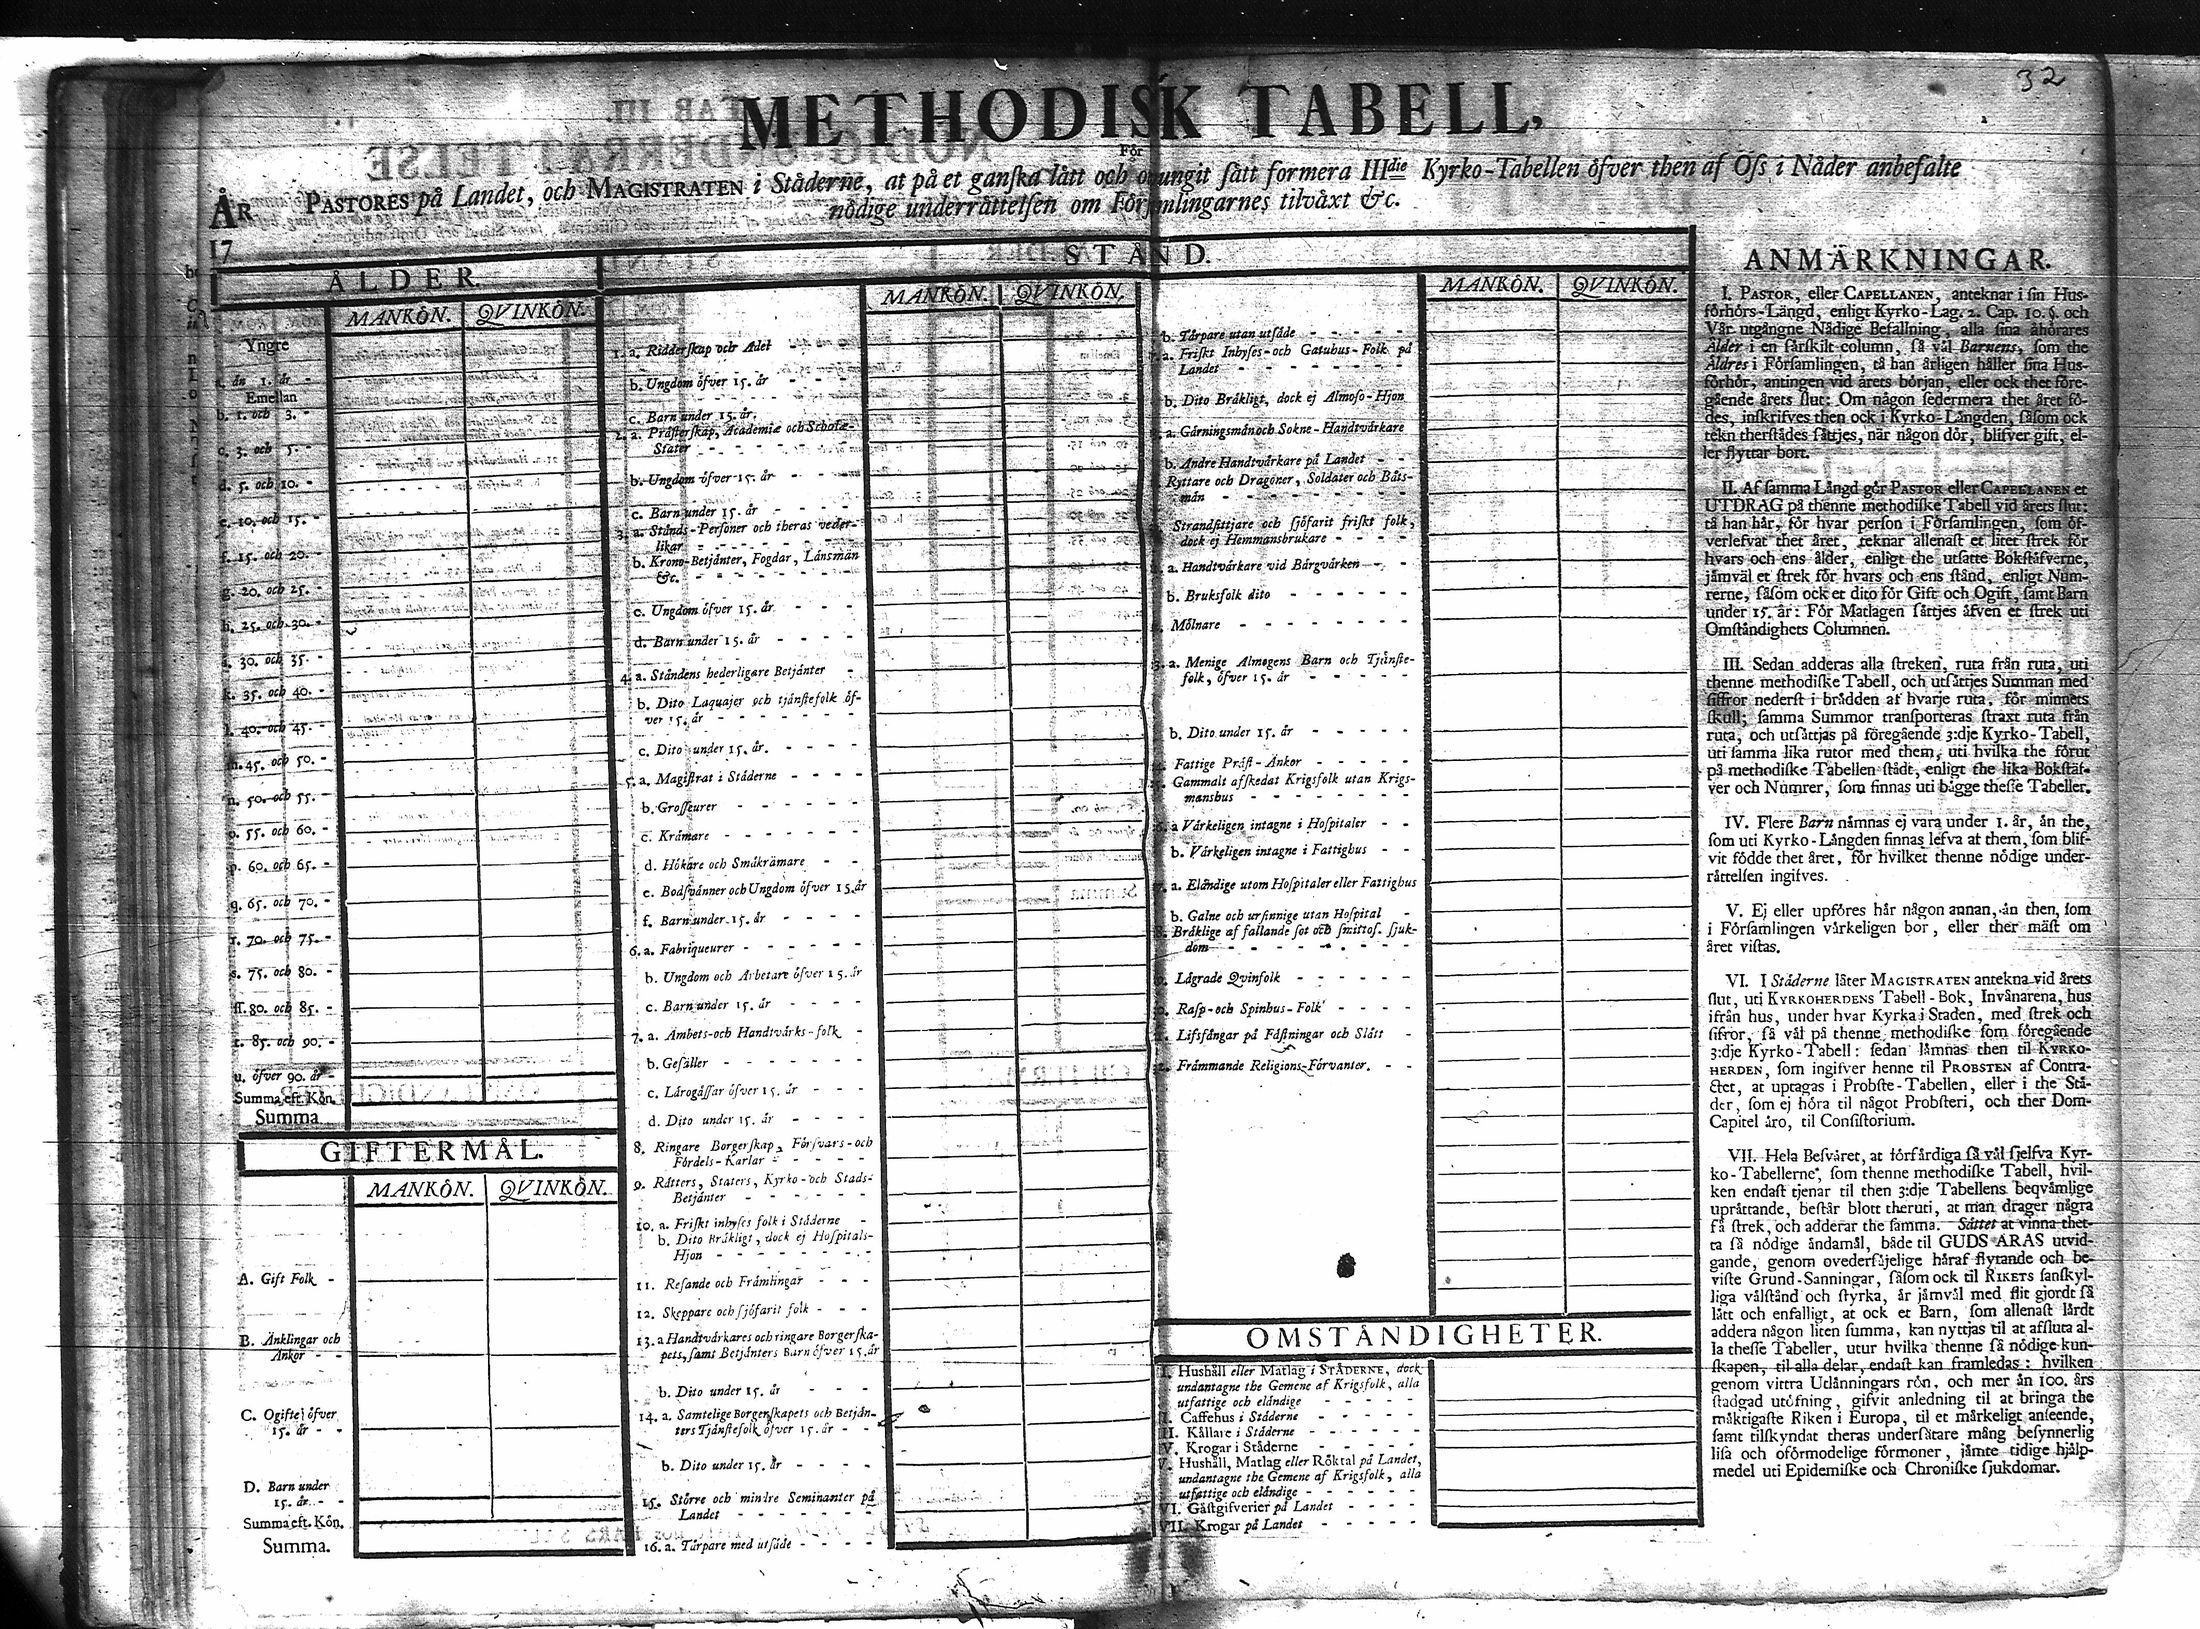 32
METHODISK TABELL,
För
PASTORES på Landet, och MAGISTRATEN i Ståderne, at på et ganſka lätt och otvungit ſätt formera IIIdie Kyrko-Tabellen öfver then af Oſs i Nåder anbefalte
nödige underråttelſen om Förſamlingarnes tilvåxt &c.
ÅR
17
ÅLDER.
MANKÖN. QVINKÖN.
Yngre
a. ån 1. år -
Emellan
b. 1. och 3. -
c. 3. och 5. -
d. 5. och 10. -
e. 10. och 15. -
f. 15. och 20. -
g. 20. och 25. -
h. 25. och 30. -
i. 30. och 35. -
k. 35. och 40. -
l. 40. och 45. -
m. 45. och 50. -
n. 50. och 55. -
o. 55. och 60. -
p. 60. och 65. -
q. 65. och 70. -
r. 70. och 75. -
s. 75. och 80. -
ſſ. 80. och 85. -
t. 85. och 90. -
u. öfver 90. år -
Summa eft. Kön.
Summa
GIFTERMÅL.
MANKÖN. QVINKÖN.
A. Gift Folk -
B. Änklingar och
Ankor - -
C. Ogifte öfver
15. år - -
D. Barn under
15. år - -
Summa eft. Kön.
Summa.
STÅND.
MANKÖN. QVINKÖN.
1. a. Ridderſkap och Adel -
b. Ungdom öfver 15. år - - - -
c. Barn under 15. år.
2. a. Präſterſkap, Academiæ och Scholæ-
Stater - - - - -
b. Ungdom öfver 15. år - - - -
c. Barn under 15. år - - - -
3. a. Stånds-Perſoner och theras veder-
likar - - - - - - -
b. Krono-Betjänter, Fogdar, Länsmän
&c. - - - - - - -
c. Ungdom öfver 15. år - - -
d. Barn under 15. år - - - -
4. a. Ståndens hederligare Betjänter -
b. Dito Laquajer och tjänſtefolk öf-
ver 15. år - - - - - -
c. Dito under 15. år. - - - -
5. a. Magiſtrat i Ståderne - - - -
b. Groſſeurer - - - - - -
c. Krämare - - - - - -
d. Hökare och Småkrämare - -
e. Bodſvänner och Ungdom öfver 15. år
f. Barn under 15. år - - - -
6. a. Fabriqueurer - - - - - -
b. Ungdom och Arbetare öfver 15. år
c. Barn under 15. år - - - -
7. a. Ämbets-och Handtvårks-folk -
b. Geſäller - - - - - - -
c. Lärogåſſar öfver 15. år - - -
d. Dito under 15. år - - - -
8. Ringare Borgerſkap, Förſvars-och
Fördels-Karlar - - - - -
9. Råtters, Staters, Kyrko-och Stads-
Betjänter - - - - - -
10. a. Friſkt inhyſes folk i Ståderne -
b. Dito Bråkligt, dock ej Hoſpitals-
Hjon - - - - - - -
11. Reſande och Främlingar - - -
12. Skeppare och ſjöfarit folk - - -
13. a Handtvårkares och ringare Borgerſka-
pets, ſamt Betjänters Barn öfver 15. år
b. Dito under 15. år - - -
14. a. Samtelige Borgerſkapets och Betjän-
ters Tjänſtefolk öfver 15. år - -
b. Dito under 15. år - - - -
15. Större och mindre Seminanter på
Landet - - - - - - -
16. a. Tårpare med utſåde - - - -
MANKÖN. QVINKÖN.
b. Tårpare utan utſåde - - - - -
a. Friſkt Inhyſes-och Gatuhus-Folk på
Landet - - - - - - -
b. Dito Bråkligt, dock ej Almoſo-Hjon
a. Gårningsmän och Sokne-Handtvårkare
b. Andre Handtvårkare på Landet - -
Ryttare och Dragoner, Soldater och Båts-
män - - - - - - - -
Strandſittjare och ſjöfarit friſkt folk,
dock ej Hemmansbrukare - - - -
a. Handtvårkare vid Bärgvårken - -
b. Bruksfolk dito - - - - - -
Mölnare - - - - - - - -
a. Menige Almogens Barn och Tjänſte-
folk, öfver 15. år - - - - -
b. Dito under 15. år - - - - -
Fattige Präſt-Änkor - - - - -
Gammalt afſkedat Krigsfolk utan Krigs-
manshus - - - - - - -
a Vårkeligen intagne i Hoſpitaler - -
b. Vårkeligen intagne i Fattighus - -
a. Elåndige utom Hoſpitaler eller Fattighus
b. Galne och urſinnige utan Hoſpital -
Bråklige af fallande ſot och ſmittoſ. ſjuk-
dom - - - - - - - -
Lågrade Qvinfolk - - - - -
Raſp-och Spinhus-Folk - - - -
Lifsfångar på Fäſtningar och Slått -
Främmande Religions-Förvanter. - -
OMSTÅNDIGHETER.
I. Hushåll eller Matlag i STÅDERNE, dock
undantagne the Gemene af Krigsfolk, alla
utfattige och elåndige - - - - -
II. Caffehus i Ståderne - - - - -
III. Kållare i Ståderne - - - - -
IV. Krogar i Ståderne - - - - -
V. Hushåll, Matlag eller Röktal på Landet,
undantagne the Gemene af Krigsfolk, alla
utfattige och elåndige - - - - -
VI. Gåſtgifverier på Landet - - - -
VII. Krogar på Landet - - - - -
ANMÄRKNINGAR.
I. PASTOR, eller CAPELLANEN, anteknar i ſin Hus-
förhörs-Långd, enligt Kyrko-Lag. 2. Cap. 10. §. och
Vår utgångne Nådige Befallning, alla ſina åhörares
Ålder i en färſkilt column, ſå väl Barnens, ſom the
Äldres i Förſamlingen, tå han årligen håller ſina Hus-
förhör, antingen vid årets början, eller ock thet före-
gående årets ſlut: Om någon ſedermera thet året fö-
des, inſkrifves then ock i Kyrko-Långden, ſåſom ock
tekn therſtådes ſåttjes, når någon dör, blifver gift, el-
ler flyttar bort.
II. Af ſamma Långd gör PASTOR eller CAPELLANEN et
UTDRAG på thenne methodiſke Tabell vid årets ſlut:
tå han hår, för hvar perſon i Förſamlingen, ſom öf-
verlefvat thet året, teknar allenaſt et litet ſtrek för
hvars och ens ålder, enligt the utſatte Bokſtäfverne,
jämväl et ſtrek för hvars och ens ſtånd, enligt Num-
rerne, ſåſom ock et dito för Gift och Ogift, ſamt Barn
under 15. år: För Matlagen ſåttjes åfven et ſtrek uti
Omſtåndighets Columnen.
III. Sedan adderas alla ſtreken, ruta från ruta, uti
thenne methodiſke Tabell, och utſåttjes Summan med
ſiffror nederſt i brådden af hvarje ruta, för minnets
ſkull; ſamma Summor tranſporteras ſtraxt ruta från
ruta, och utſåttjas på föregående 3:dje Kyrko-Tabell,
uti ſamma lika rutor med them, uti hvilka the förut
på methodiſke Tabellen ſtådt, enligt the lika Bokſtäf-
ver och Numrer, ſom finnas uti bågge theſſe Tabeller.
IV. Flere Barn nämnas ej vara under 1. år, ån the,
ſom uti Kyrko-Långden finnas lefva at them, ſom blif-
vit födde thet året, för hvilket thenne nödige under-
råttelſen ingifves.
V. Ej eller upföres hår någon annan, ån then, ſom
i Förſamlingen vårkeligen bor, eller ther måſt om
året viſtas.
VI. I Ståderne låter MAGISTRATEN antekna vid årets
ſlut, uti KYRKOHERDENS Tabell-Bok, Invånarena, hus
ifrån hus, under hvar Kyrka i Staden, med ſtrek och
ſifror, ſå vål på thenne methodiſke ſom föregående
3:dje Kyrko-Tabell: ſedan låmnas then til KYRKO-
HERDEN, ſom ingifver henne til PROBSTEN af Contra-
ctet, at uptagas i Probſte-Tabellen, eller i the Stå-
der, ſom ej höra til något Probſteri, och ther Dom-
Capitel åro, til Conſiſtorium.
VII. Hela Beſvåret, at förfårdiga ſå vål ſjelfva Kyr-
ko-Tabellerne, ſom thenne methodiſke Tabell, hvil-
ken endaſt tjenar til then 3:dje Tabellens beqvåmlige
upråttande, beſtår blott theruti, at man drager några
få ſtrek, och adderar the ſamma. Såttet at vinna thet-
ta ſå nödige åndamål, både til GUDS ÄRAS utvid-
gande, genom ovederſåjelige håraf flytande och be-
viſte Grund-Sanningar, ſåſom ock til RIKETS ſanſkyl-
liga vålſtånd och ſtyrka, år jämvål med flit gjordt ſå
lått och enfalligt, at ock et Barn, ſom allenaſt lårdt
addera någon liten ſumma, kan nyttjas til at afſluta al-
la theſſe Tabeller, utur hvilka thenne ſå nödige kun-
ſkapen, til alla delar, endaſt kan framledas: hvilken
genom vittra Utlånningars rön, och mer ån 100. års
ſtadgad utöfning, gifvit anledning til at bringa the
måktigaſte Riken i Europa, til et mårkeligt anſeende,
ſamt tilſkyndat theras underſåtare mång beſynnerlig
liſa och oförmodelige förmoner, jämte tidige hjålp-
medel uti Epidemiſke och Chroniſke ſjukdomar.